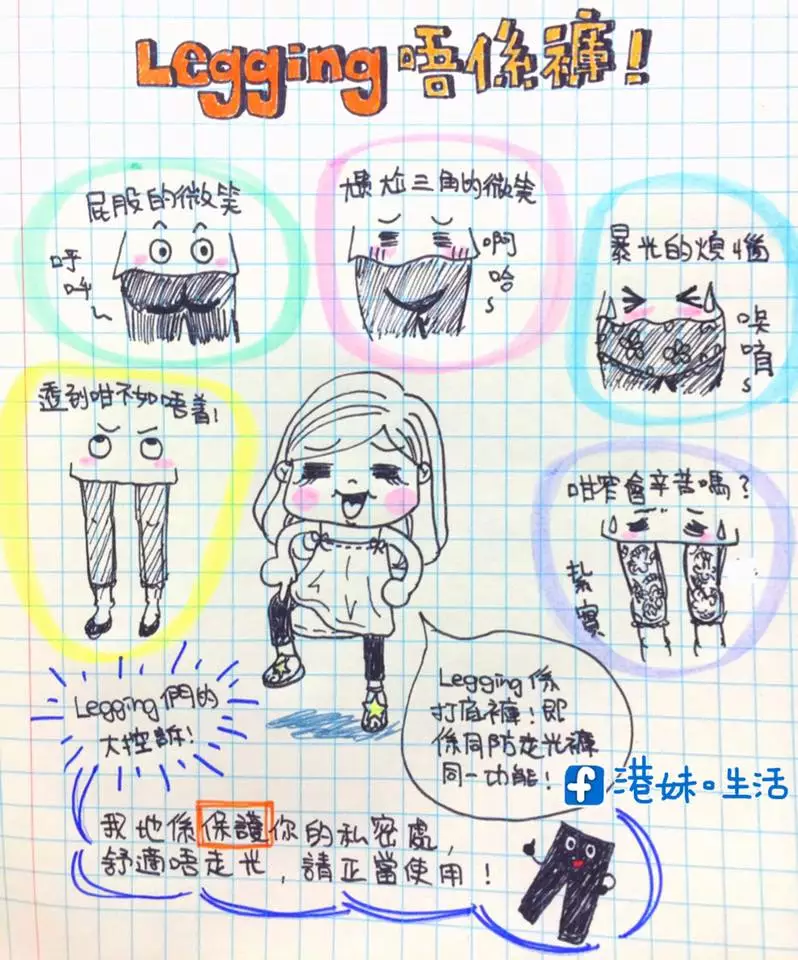 Legging 唔係褲!
屁股的微笑
呼
呼~
尷尬三角的微笑
啊
哈
s
暴光的煩惱
唉
唷
s
透到咁不如唔着!
咁窄會辛苦嗎?
紮實
Legging們的
大控訴!
Legging係
打底褲!即
係同防走光褲
同一功能!
f 港妹。生活
我地係保護你的私密處,
舒適唔走光,請正當使用!